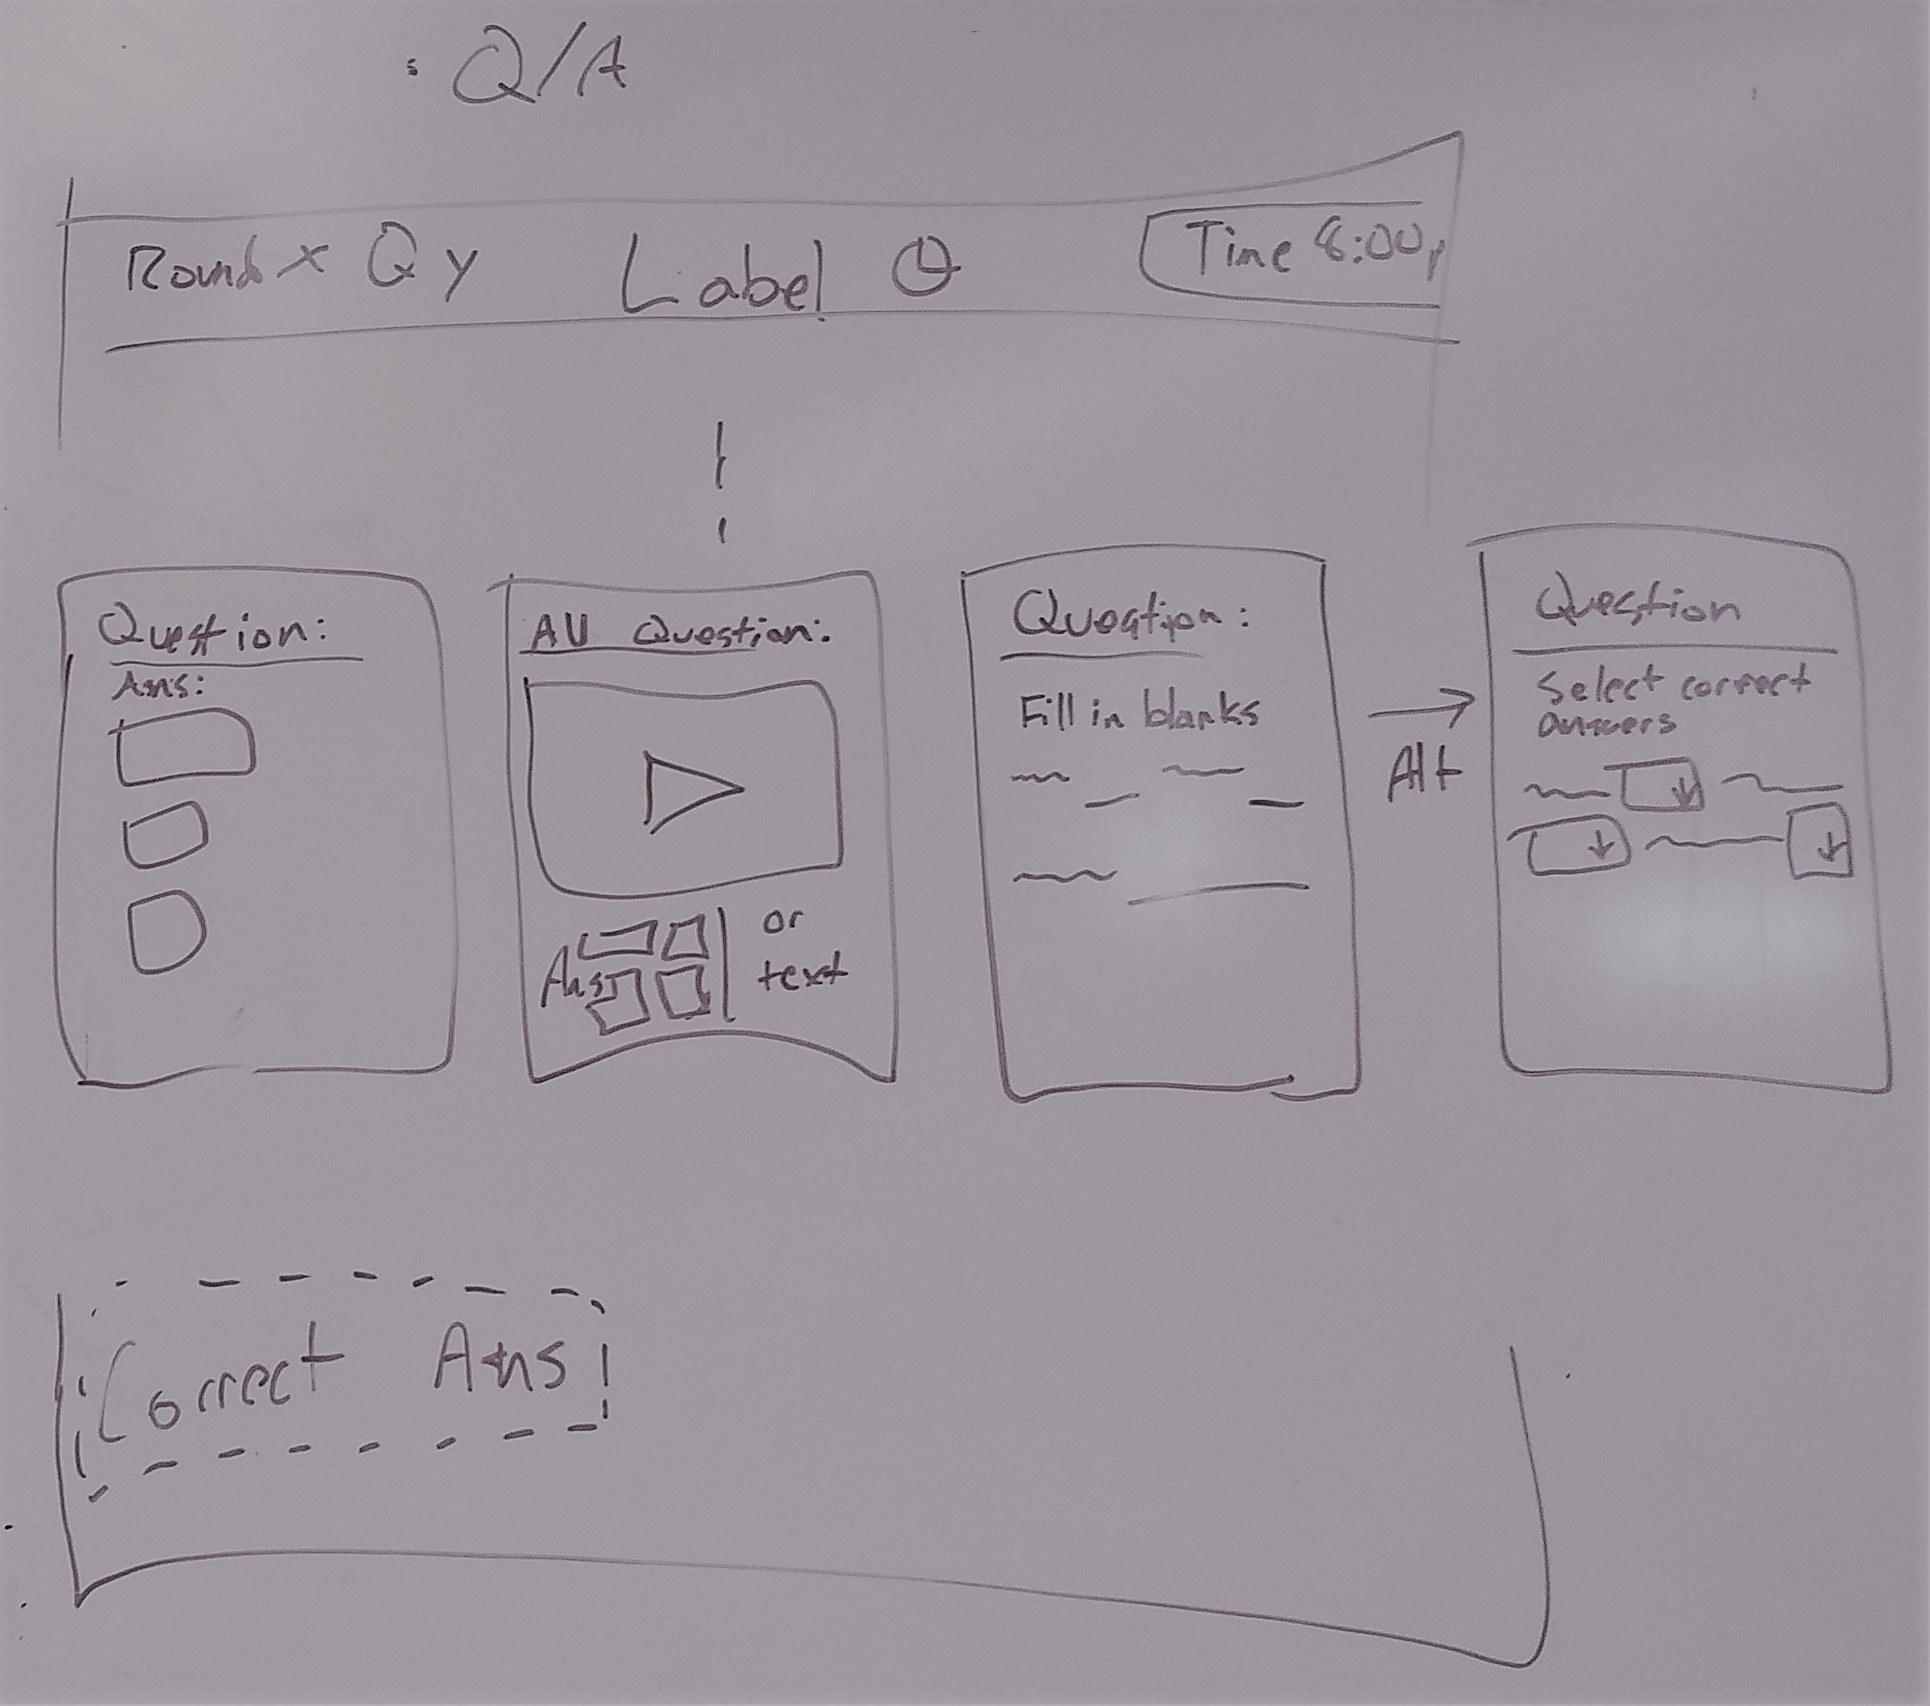 Q/A
Round x Q y Label Time 8:00p
Question:
Ans:
AV Question:
Ans
or
text
Question:
Fill in blanks
Alt
Question
Select correct
answers
Correct Ans